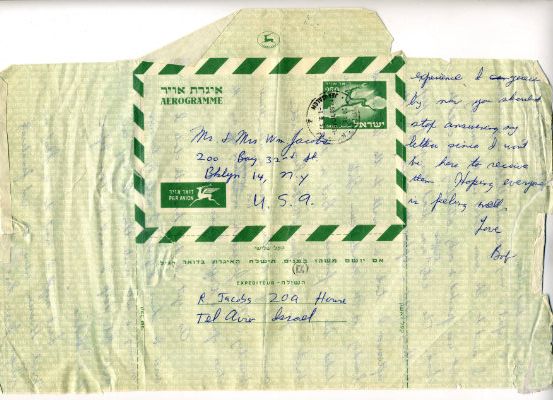 איגרת אויר
AEROGRAMME
250
ישראל
Mr & Mrs Wm Jacobs
200 Bay 32nd St
Bklyn 14, N.Y
U.S.A.
דואר אויר
PAR AVION
קפל שלישי
אם יושם משהו בפנים, תישלח האיגרת בדואר רגיל
(EG)
EXPEDITEUR - השולח
R Jacobs ZOA House
Tel Aviv Israel
experience I can
By now you should
stop answering my
letters since I won't
be here to receive
them. Hoping everyone
is feeling well.
Love
Bob